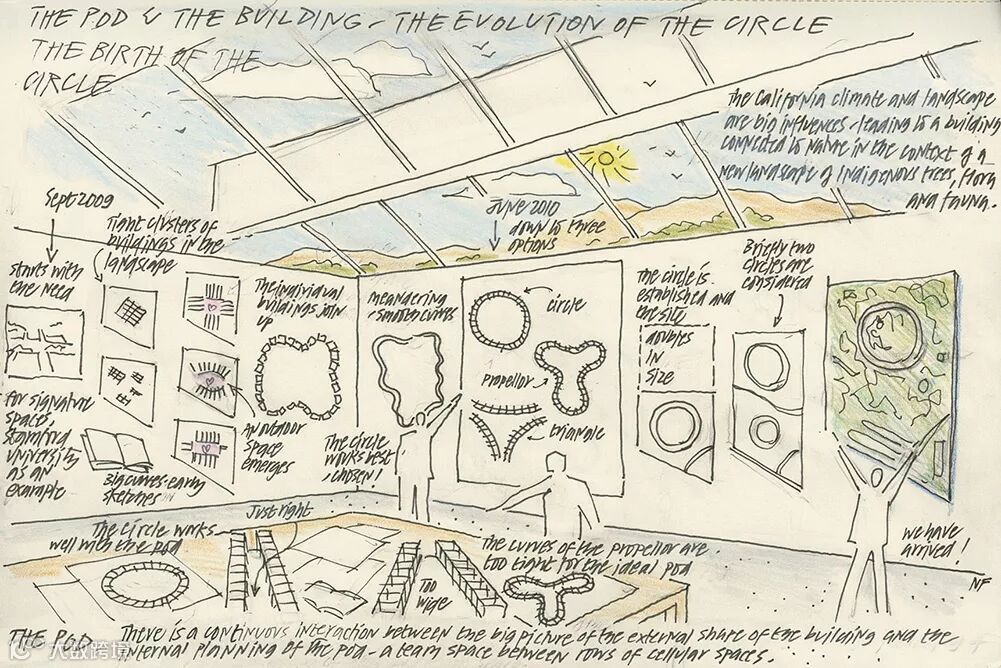 THE POD & THE BUILDING - THE EVOLUTION OF THE CIRCLE
THE BIRTH OF THE
CIRCLE
The California climate and landscape
are big influences - leading to a building
connected to nature in the context of a
new landscape of indigenous trees, flora
and fauna.
Sept 2009
starts with
the need
Tight clusters of
buildings in the
landscape
The individual
buildings join
up
meandering
- smooth curves
June 2010
down to three
options
circle
propellor
triangle
The circle is
established and
the site
doubles
in
size
Briefly two
circles are
considered
for signature
spaces,
Stamford
University
as an
example
Big curves - early
sketches
An outdoor
space
emerges
The circle
works best
- chosen!
we have
arrived!
NF
The circle works
well with the pod
Just right
Too
wide
The curves of the propellor are
too tight for the ideal pod
THE POD There is a continuous interaction between the big picture of the external share of the building and the
internal planning of the pod - a team space between rows of cellular spaces.
大数跨境